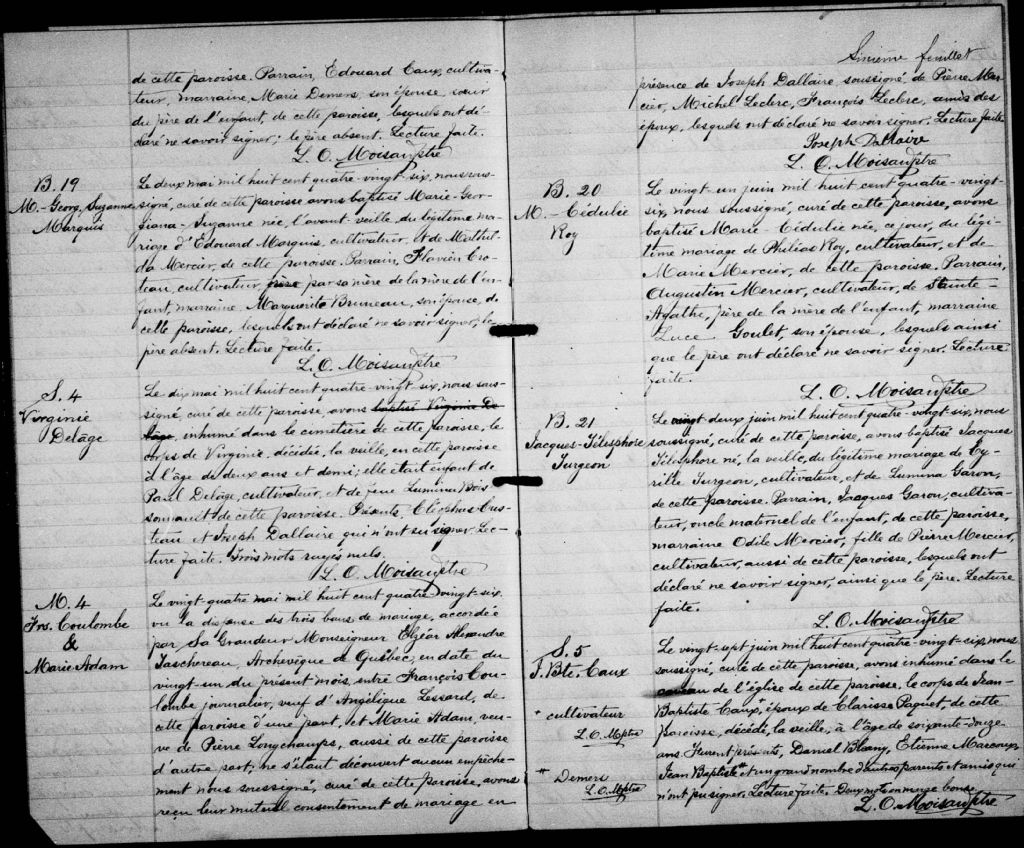 de cette paroisse. Parrain, Edouard Caux, cultiva-
teur, marraine, Marie Demers, son épouse, sœur
du père de l'enfant, de cette paroisse, lesquels ont dé-
claré ne savoir signer; le père absent. Lecture faite.
L. O. Moisan ptre
B. 19
M.-Georg. Suzanne
Marquis
Le deux mai mil huit cent quatre-vingt-six, nous sous-
signé, curé de cette paroisse avons baptisé Marie-Geor-
giana-Suzanne née, l'avant veille, du légitime ma-
riage d'Edouard Marquis, cultivateur, et de Mathil-
da Mercier, de cette paroisse. Parrain, Flavien Cro-
teau, cultivateur, frère par sa mère de la mère de l'en-
fant, marraine, Marguerite Bruneau, son épouse, de
cette paroisse, lesquels ont déclaré ne savoir signer, le
père absent. Lecture faite.
L. O. Moisan ptre
S. 4
Virginie
Delâge
Le dix mai mil huit cent quatre-vingt six, nous sous-
signé, curé de cette paroisse, avons baptisé Virginie De-
lâge, inhumé dans le cimetière de cette paroisse, le
corps de Virginie, décédée, la veille, en cette paroisse
à l'âge de deux ans et demi; elle était enfant de
Paul Delâge, cultivateur, et de feue Lumina Bois
sonnault de cette paroisse. Présents, Cléophas Crs-
teau et Joseph Dallaire qui n'ont su signer. Lec-
ture faite. Trois mots rayés nuls.
L. O. Moisan ptre
M. 4
Frs. Coulombe
&
Marie Adam
Le vingt-quatre mai mil huit cent quatre-vingt-six.
vu la dispense des trois bans de mariage, accordée
par Sa Grandeur Monseigneur Elzéar Alexandre
Taschereau, Archevêque de Québec, en date du
vingt-un du présent mois, entre François Cou-
lombe journalier, veuf d'Angélique Lessard, de
cette paroisse d'une part, et Marie Adam, veu-
ve de Pierre Longchamps, aussi de cette paroisse
d'autre part, ne s'étant découvert aucun empêche-
ment nous soussigné, curé de cette paroisse, avons
reçu leur mutuel consentement de mariage en
Sixième feuillet
présence de Joseph Dallaire soussigné, de Pierre Mar-
cier, Michel Leclerc, François Leclerc, amis des
époux, lesquels ont déclaré ne savoir signer. Lecture faite
Joseph Dallaire
L. O. Moisan ptre
B. 20
M.-Cédulie
Roy
Le vingt-un juin mil huit cent quatre-vingt-
six, nous soussigné, curé de cette paroisse, avons
baptisé Marie-Cédulie née, ce jour, du légi-
time mariage de Philéas Roy, cultivateur, et de
Marie Mercier, de cette paroisse. Parrain,
Augustin Mercier, cultivateur, de Sainte-
Agathe, père de la mère de l'enfant, marraine
Luce Goulet, son épouse, lesquels ainsi
que le père ont déclaré ne savoir signer. Lecture
faite.
L. O. Moisan ptre
B. 21
Jacques-Télesphore
Turgeon
Le vingt deux juin mil huit cent quatre-vingt-six, nous
soussigné, curé de cette paroisse, avons baptisé Jacques
Télesphore né, la veille, du légitime mariage de Cy-
rille Turgeon, cultivateur, et de Lumina Garon,
de cette paroisse. Parrain, Jacques Garon, cultiva-
teur, oncle maternel de l'enfant, de cette paroisse,
marraine Odile Mercier, fille de Pierre Mercier,
cultivateur, aussi de cette paroisse, lesquels ont
déclaré ne savoir signer, ainsi que le père. Lecture
faite.
L. O. Moisan ptre
S. 5
J. Bte. Caux
* cultivateur
L. O. M. ptre
# Demers
L. O. M. ptre
Le vingt-sept juin mil huit cent quatre-vingt-six, nous
soussigné, curé de cette paroisse, avons inhumé dans le
caveau de l'église de cette paroisse, le corps de Jean-
Baptiste Caux*, époux de Clarisse Paquet, de cette
paroisse, décédé, la veille, à l'âge de soixante-douze
ans. Furent présents, Daniel, Etienne Marcoux,
Jean Baptiste# et un grand nombre d'autres parents et amis qui
n'ont pu signer. Lecture faite. Deux mots en marge bons.
L. O. Moisan ptre